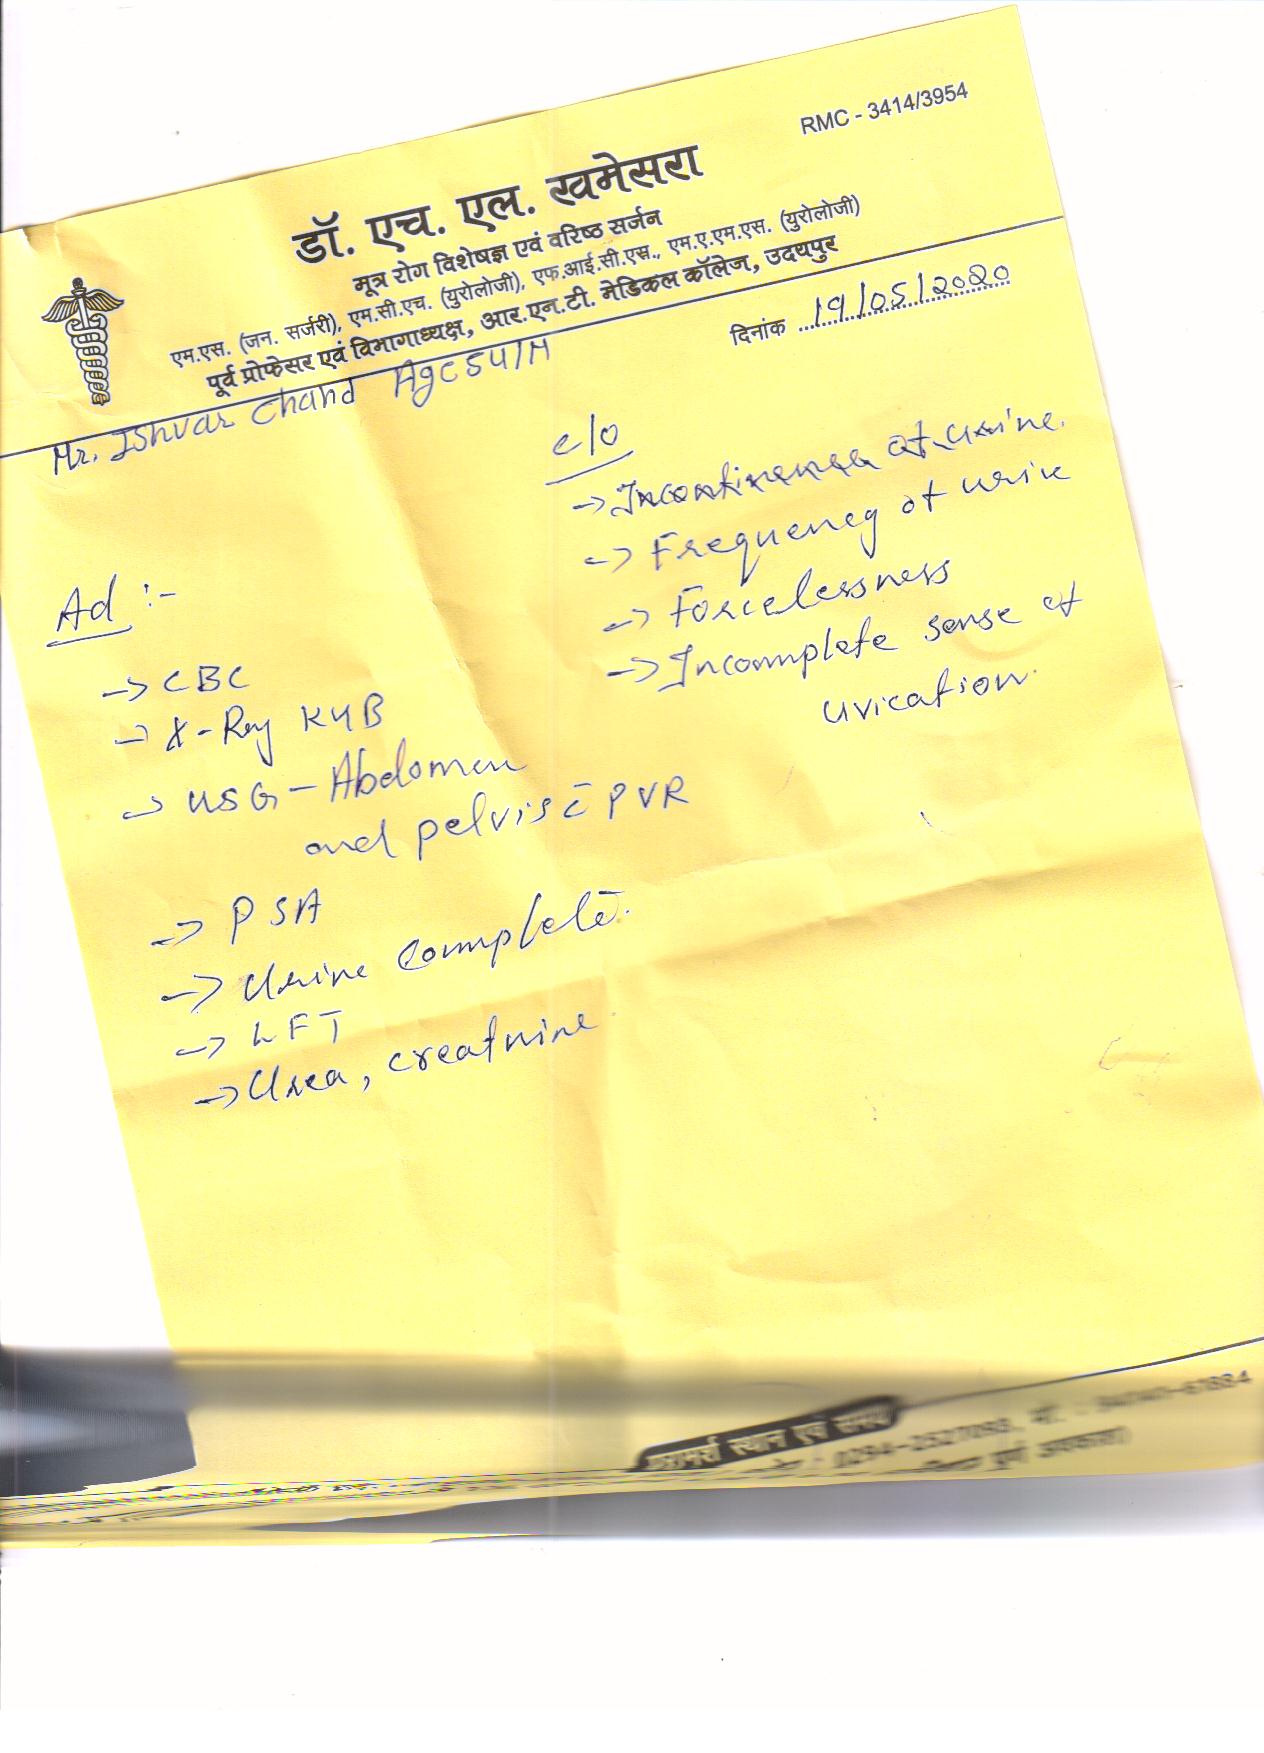 RMC - 3414/3954
डॉ. एच. एल. खमेसरा
मूत्र रोग विशेषज्ञ एवं वरिष्ठ सर्जन
एम.एस. (जन. सर्जरी), एम.सी.एच. (युरोलोजी), एफ.आई.सी.एस., एम.ए.एम.एस. (युरोलोजी)
पूर्व प्रोफेसर एवं विभागाध्यक्ष, आर.एन.टी. मेडिकल कॉलेज, उदयपुर
दिनांक 19/05/2020
Mr. Ishvar Chand Age 54/M
c/o
→ Incontinense of urine.
→ Frequency of urine
→ Forcelessness
→ Incomplete sense of
urication.
Ad :-
→ CBC
→ X-Ray KUB
→ USG - Abdomen
and pelvis c̄ PVR
→ PSA
→ Urine complete.
→ LFT
→ Urea, creatnine.
परामर्श स्थान एवं समय